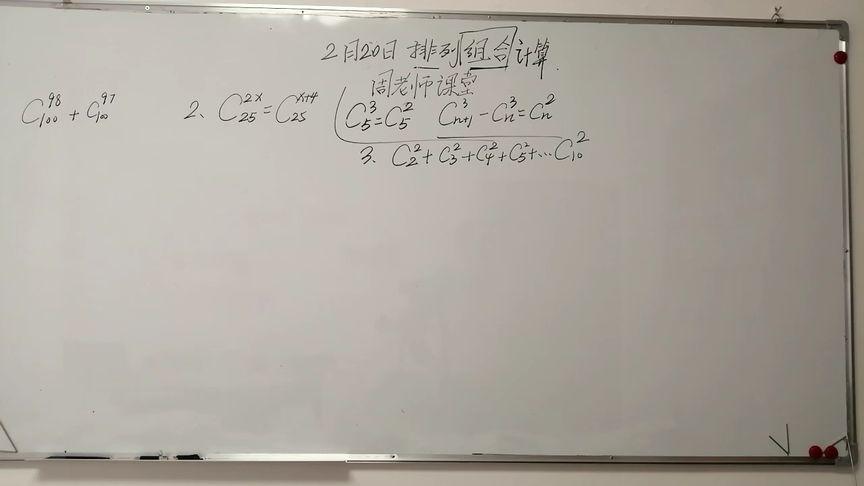 2月20日 排列组合计算.
周老师课堂
C₁₀₀⁹⁸ + C₁₀₀⁹⁷
2、C₂₅²ˣ = C₂₅ˣ⁺⁴
C₅³ = C₅² Cₙ₊₁³ - Cₙ³ = Cₙ²
3、C₂² + C₃² + C₄² + C₅² + … C₁₀²